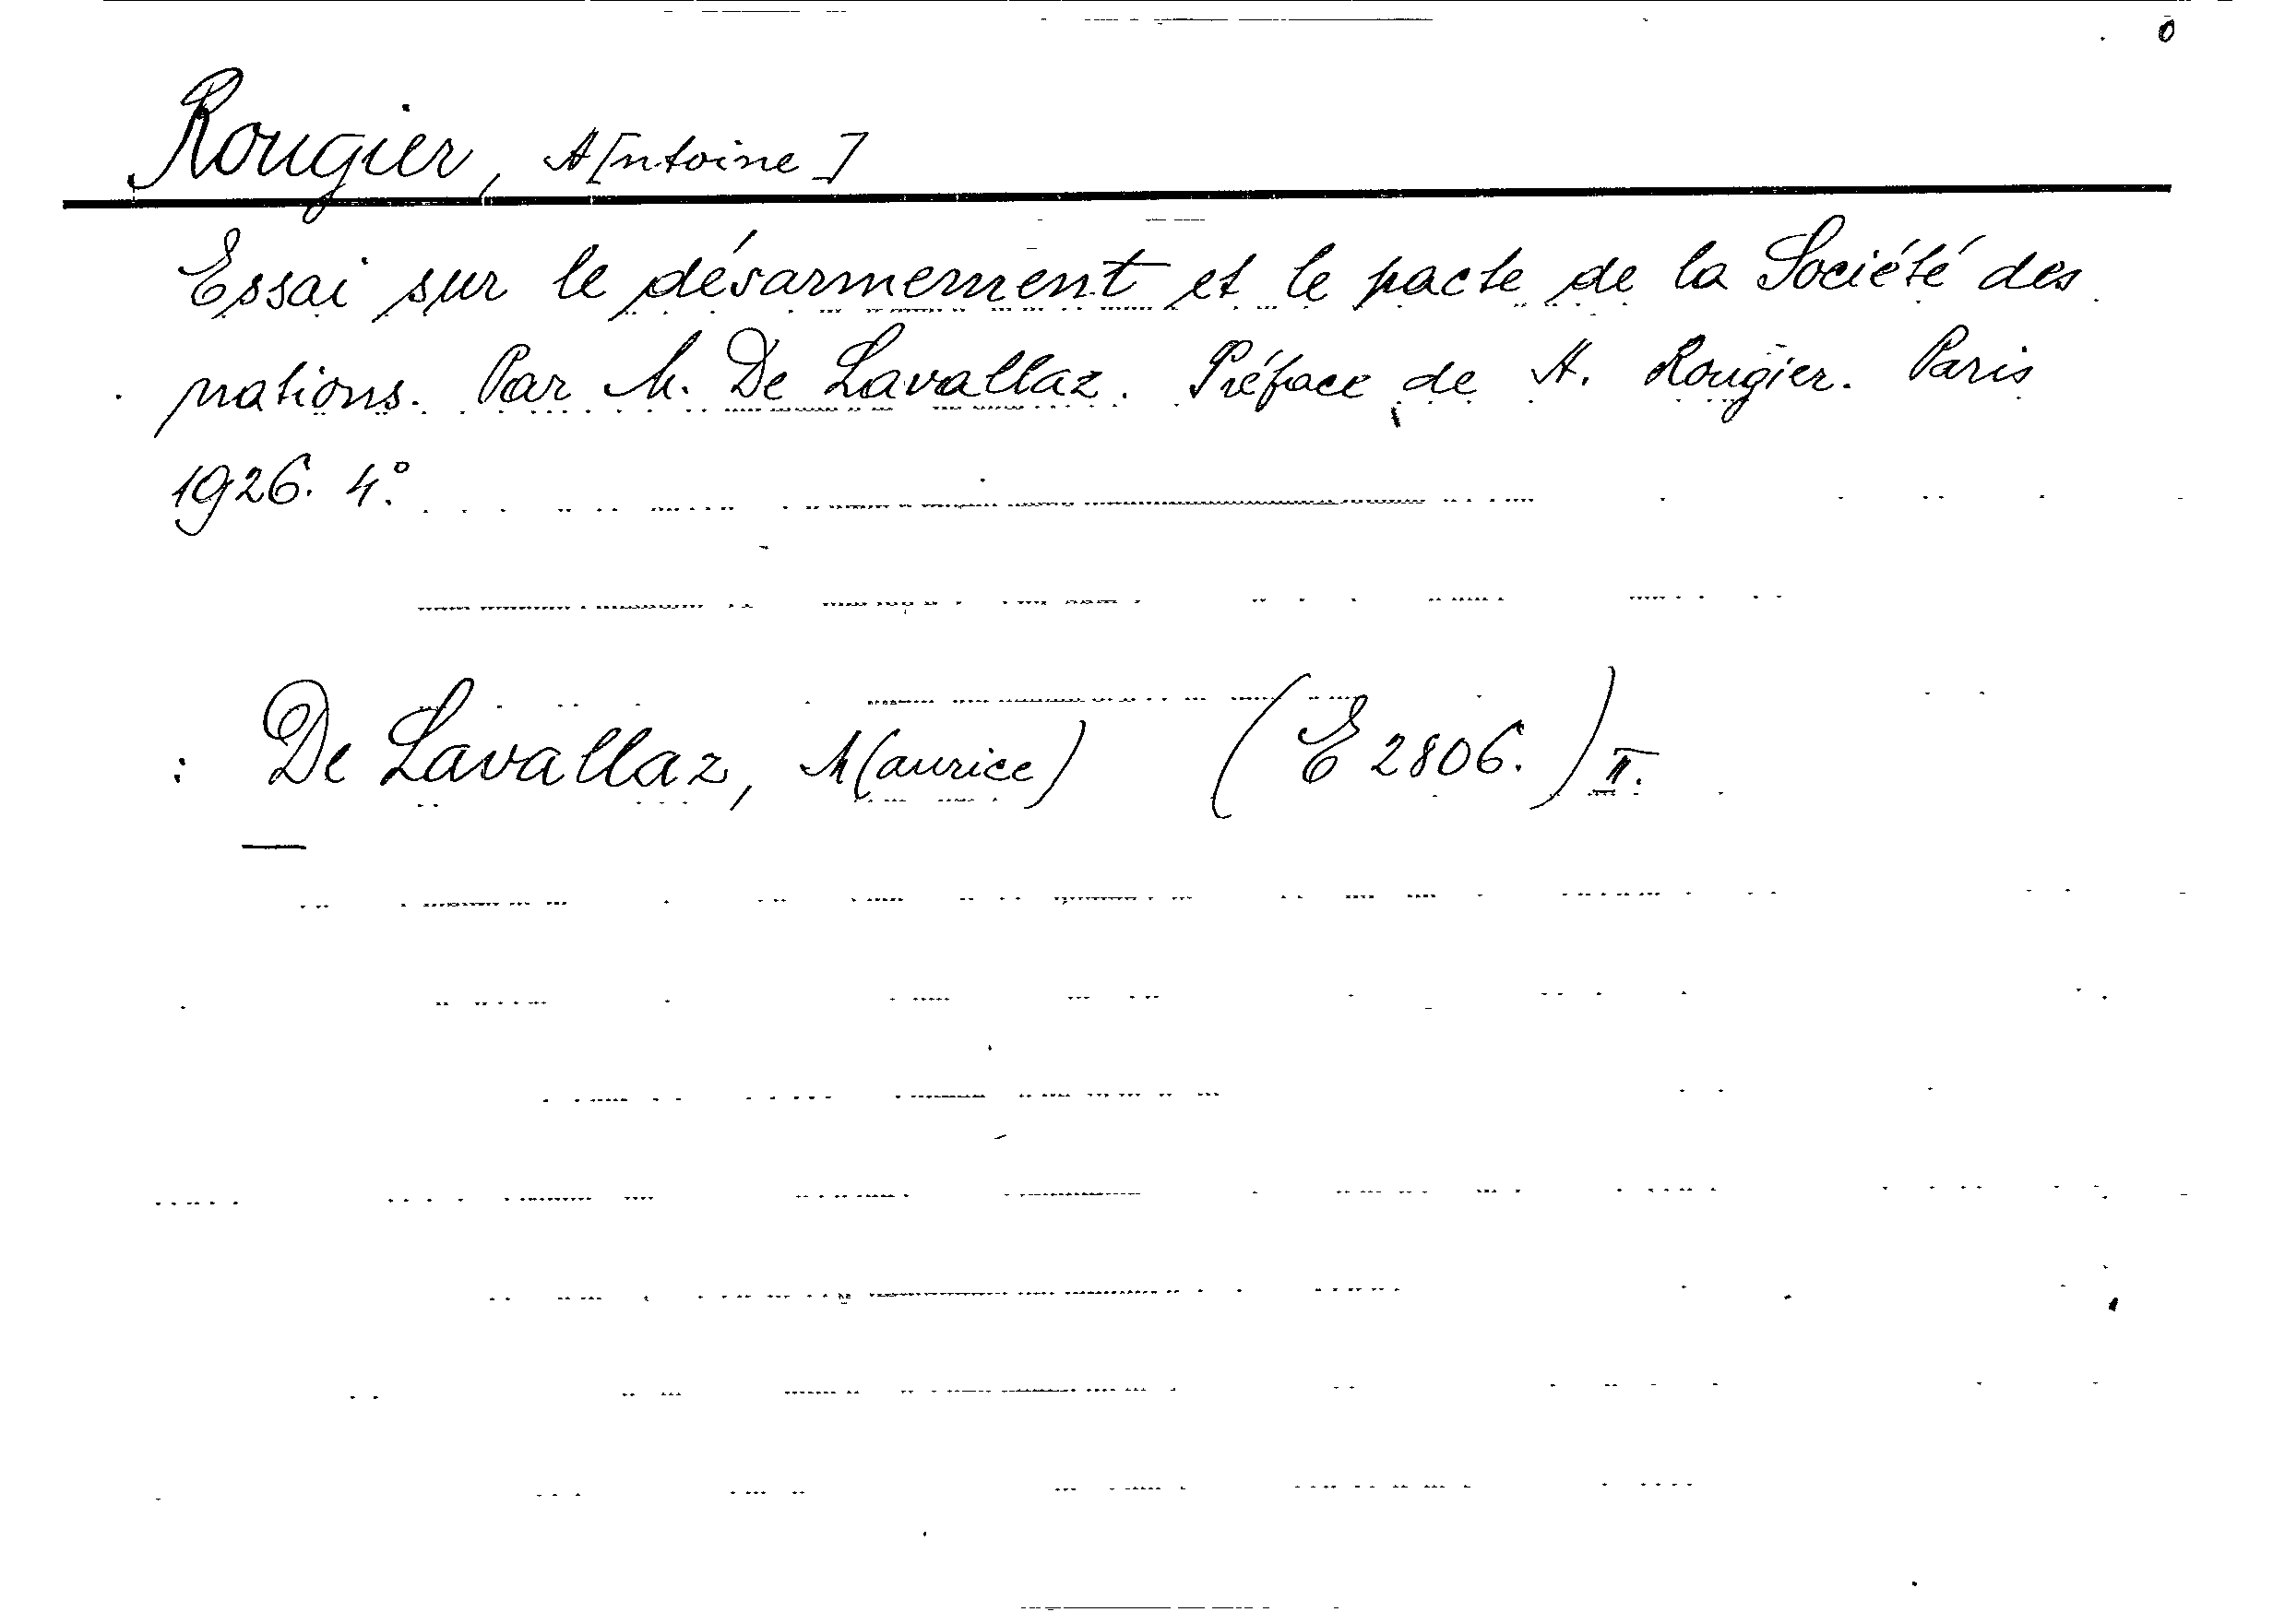 Rougier, A[ntoine]
Essai sur le désarmement et le pacte de la Société des
nations. Par M. De Lavallaz. Préface de A. Rougier. Paris
1926. 4°.
: De Lavallaz, M(aurice) (E 2806.) II.